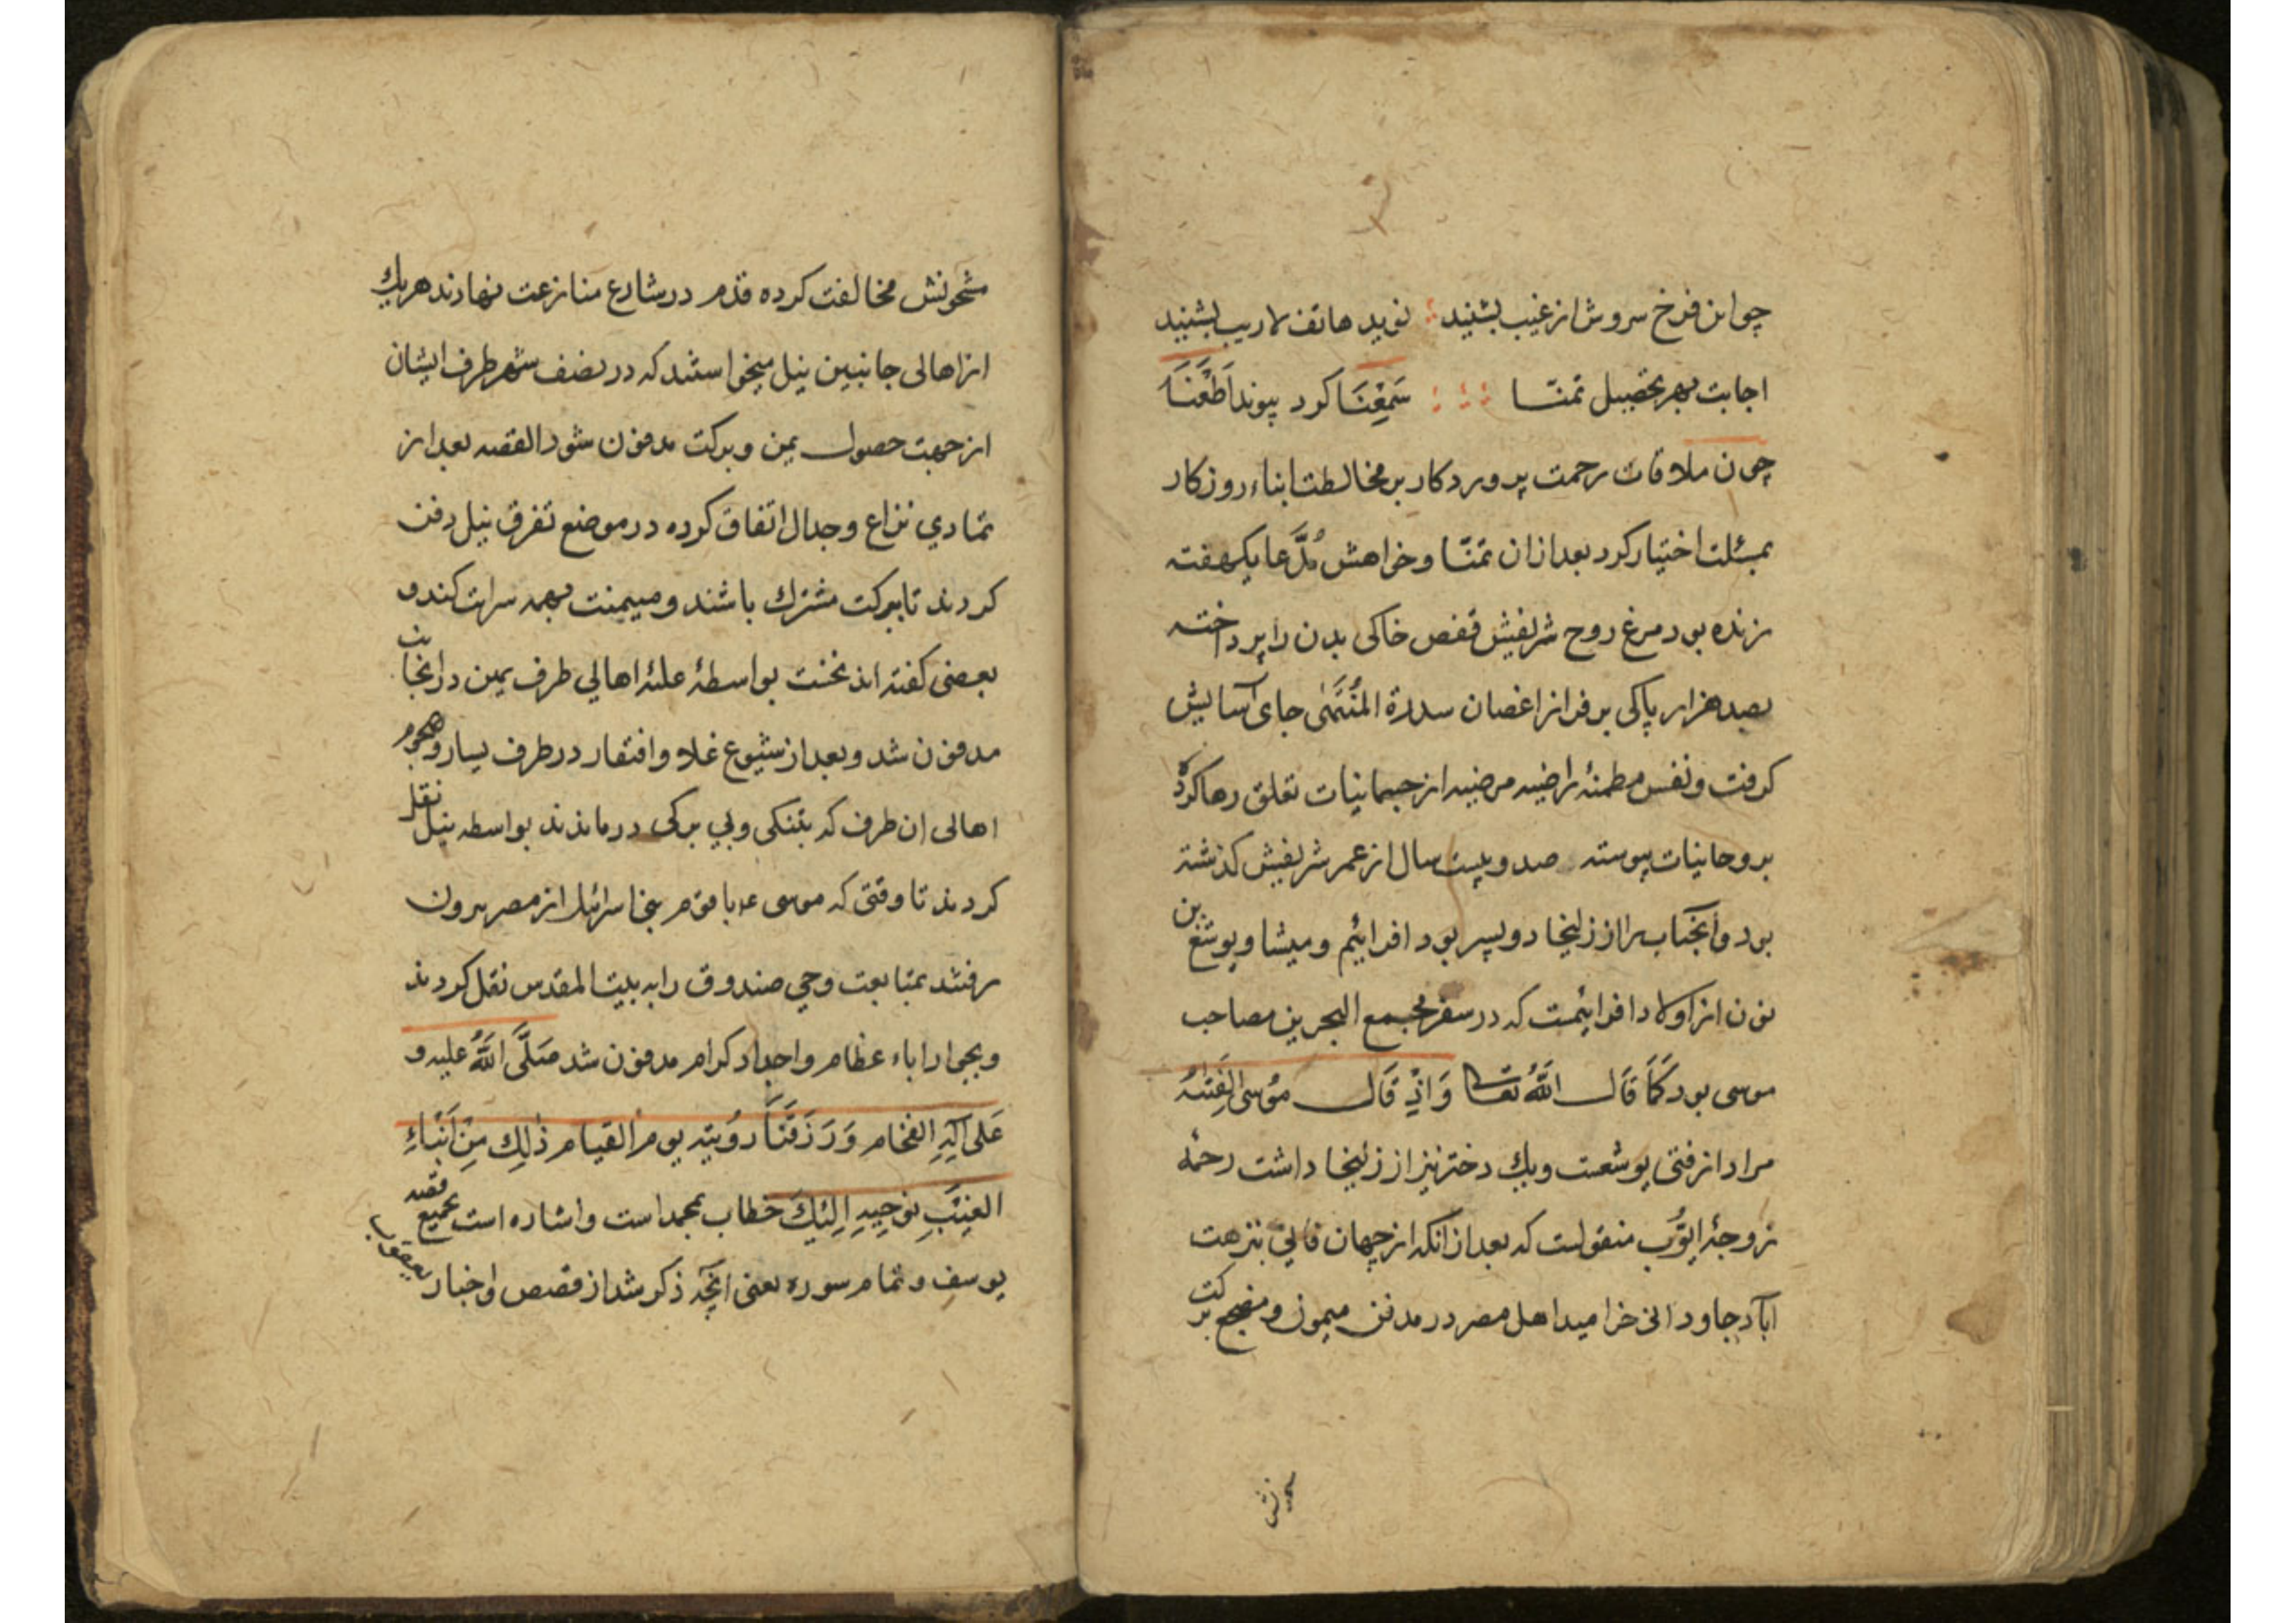 چو این فرخ سروش از غیب بشنید ؛ نوید هاتف لاریب بشنید
اجابت بهر تحصیل تمنّا ؛ ؛ ؛ سَمِعْنَا کرد پیوند اَطَعْنَا
چون ملاقات رحمت پروردکار بر مخالطت ابناء روزکار
بمسئلت اختیار کرد بعد ازان تمنّا و خواهش مُدَّعا یکهفته
زنده بود مرغ روح شریفش قفص خاکی بدن را پرداخته
بصد هزار پاکی بر فراز اغصان سدرة المُنْتَهٰی جای آسایش
کرفت و نفس مطمئنهٔ راضیه مرضیه از جسمانیات تعلق رها کرده
بروحانیات پیوسته صد و بیست سال از عمر شریفش کذشته
بود و آنجناب را از زلیخا دو پسر بود افرائیم و میشا و یوشع بن
نون از اولاد افرائیمست که در سفر مجمع البحرین مصاحب
موسی بود کَمَا قَالَ اللّٰهُ تعالی وَ اِذْ قَالَ مُوسٰی لِفَتٰیهُ
مراد از فتی یوشعست و یك دختر نیز از زلیخا داشت رحمه
زوجهٔ ایُّوب منقولست که بعد از انکه از جهان فانی بنزهت
آباد جاودانی خرامید اهل مصر در مدفن میمون و مضجع برکت
مشحونش
مشحونش مخالفت کرده قدم در شارع منازعت نهادند هریك
از اهالی جانبین نیل میخواستند که در نصف شهر طرف ایشان
از جهت حصول یمن و برکت مدفون شود القصه بعد از
تمادی نزاع و جدال اتفاق کرده در موضع تفرق نیل دفن
کردند تا ببرکت مشترك باشند و میمنت بهمه سرایت کند و
بعضی کفته اند نخست بواسطهٔ غلبهٔ اهالی طرف یمین در آنجانب
مدفون شد و بعد از شیوع غلا و افتقار در طرف یسار و هجوم
اهالی ان طرف که بتنکی و بی برکی درماندند بواسطه نیل نقل
کردند تا وقتی که موسی ع با قوم بنی اسرائیل از مصر بیرون
رفتند بمتابعت وحی صندوق را به بیت المقدس نقل کردند
و بجوار اباء عظام و اجداد کرام مدفون شد صَلَّی اللّٰهُ علیه و
عَلٰی آلِهِ الفخام وَ رَزَقَنَا رؤیته یوم القیام ذٰلِكَ مِنْ اَنْبَاءِ
الغَیْبِ نوحِیهِ اِلَیْكَ خطاب بمحمد است و اشاره است بجمیع قصه
یوسف و تمام سوره یعنی انچه ذکر شد از قصص و اخبار یعقوب